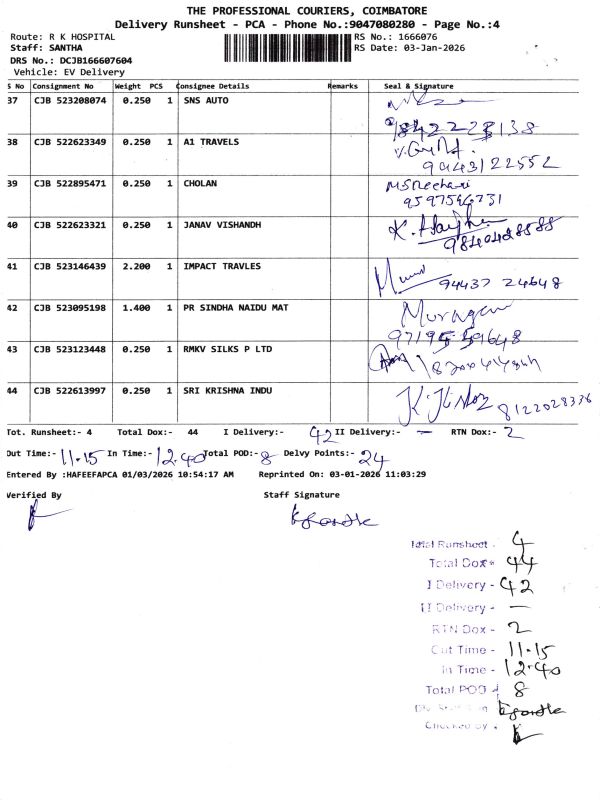 THE PROFESSIONAL COURIERS, COIMBATORE
Delivery Runsheet - PCA - Phone No.:9047080280 - Page No.:4
Route: R K HOSPITAL RS No.: 1666076
Staff: SANTHA RS Date: 03-Jan-2026
DRS No.: DCJB166607604
Vehicle: EV Delivery
S No Consignment No Weight PCS Consignee Details Remarks Seal & Signature
37 CJB 523208074 0.250 1 SNS AUTO
9842223138
38 CJB 522623349 0.250 1 A1 TRAVELS
9443122552
39 CJB 522895471 0.250 1 CHOLAN
40 CJB 522623321 0.250 1 JANAV VISHANDH
41 CJB 523146439 2.200 1 IMPACT TRAVLES
94437 24648
42 CJB 523095198 1.400 1 PR SINDHA NAIDU MAT Murugan
43 CJB 523123448 0.250 1 RMKV SILKS P LTD
44 CJB 522613997 0.250 1 SRI KRISHNA INDU
8122028336
Tot. Runsheet:- 4 Total Dox:- 44 I Delivery:- 42 II Delivery:- — RTN Dox:- 2
Out Time:- 11.15 In Time:- 12.40 Total POD:- 8 Delvy Points:- 24
Entered By :HAFEEFAPCA 01/03/2026 10:54:17 AM Reprinted On: 03-01-2026 11:03:29
Verified By Staff Signature
Total Runsheet - 4
Total Dox - 44
I Delivery - 42
II Delivery - —
RTN Dox - 2
Out Time - 11.15
In Time - 12.40
Total POD - 8
Checked by